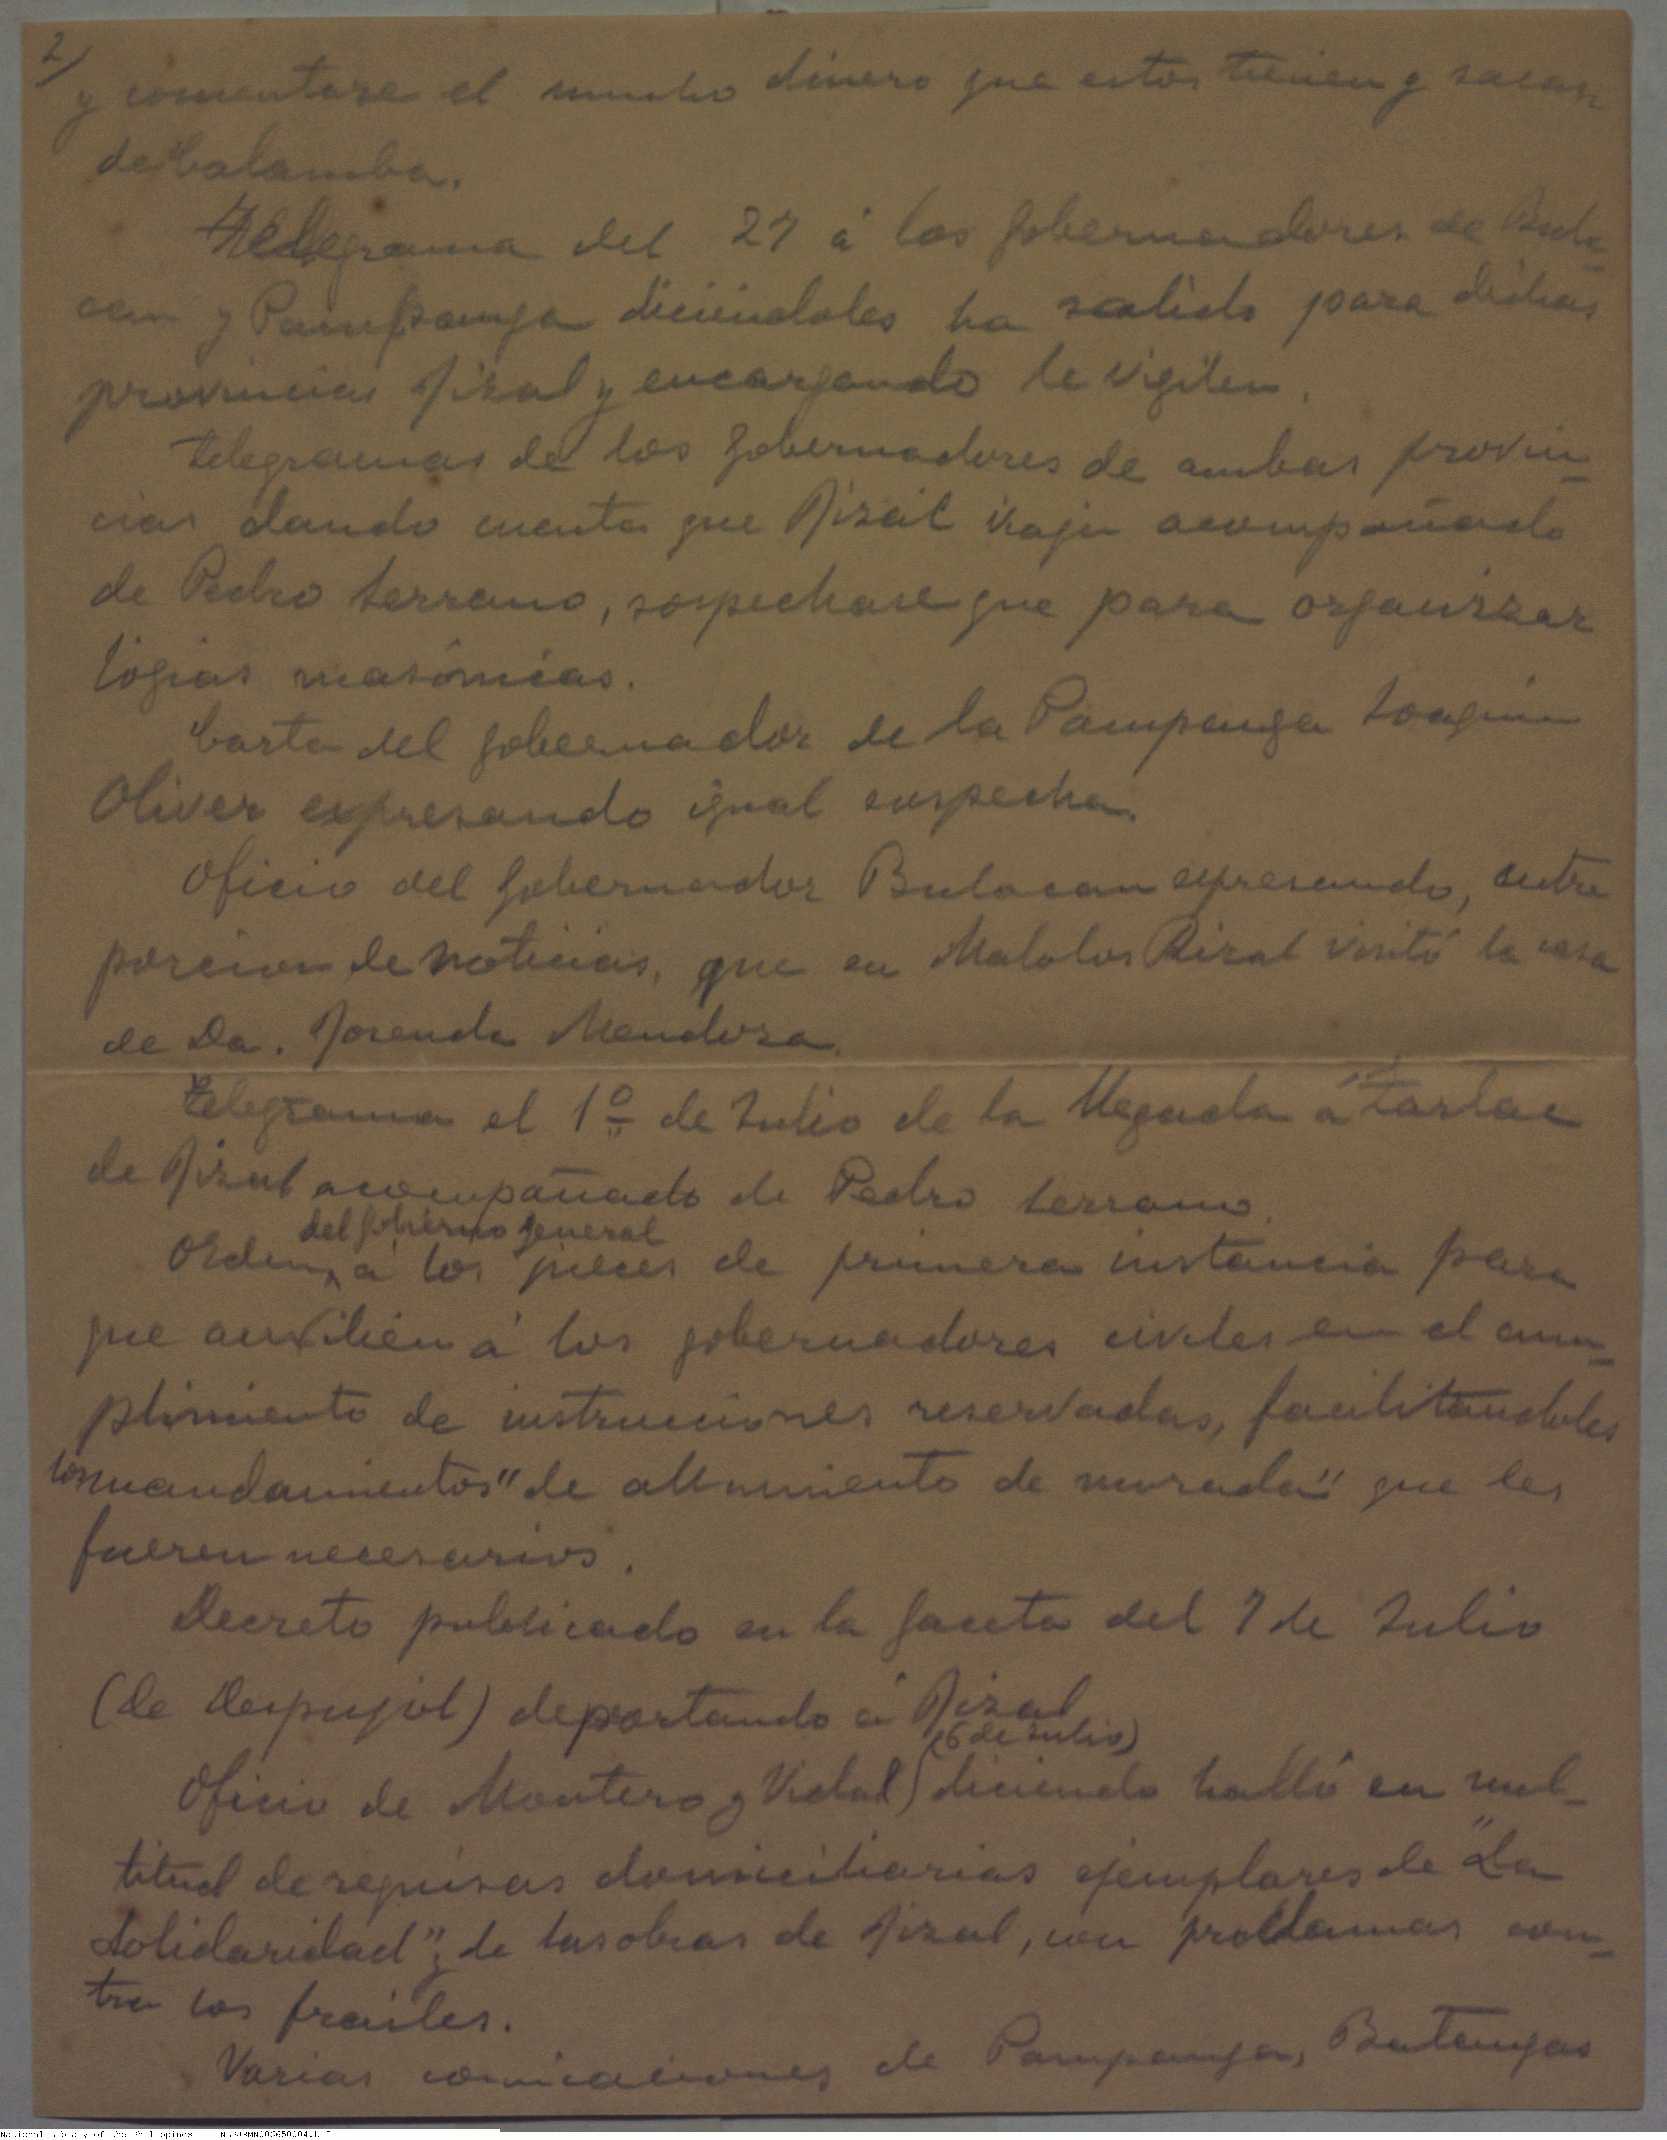 2/
y comentase el mucho dinero que estos tienen y sacan
de Calamba.
Telegrama del 27 á los gobernadores de Bula-
can y Pampanga diciéndoles ha salido para dichas
provincias Rizal y encargando le vigilen.
Telegramas de los gobernadores de ambas provin-
cias dando cuenta que Rizal viaja acompañado
de Pedro Serrano, sospechase que para organizar
logias masónicas.
Carta del gobernador de la Pampanga Joaquin
Oliver expresando igual sospecha.
Oficio del gobernador Bulacan expresando, entre
porcion de noticias, que en Malolos Rizal visitó la casa
de Da. Rosenda Mendoza.
Telegrama el 1º de Julio de la llegada á Tarlac
de Rizal acompañado de Pedro Serrano.
del gobierno general
Orden á los jueces de primera instancia para
que auxilien á los gobernadores civiles en el cum-
plimiento de instrucciones reservadas, facilitandoles
los mandamientos "de allanamiento de morada" que les
fueren necesarios.
Decreto publicado en la gaceta del 7 de Julio
(de Despujol) deportando á Rizal
(6 de Julio)
Oficio de Montero y Vidal diciendo halló en mul-
titud de requisas domiciliarias ejemplares de "La
Solidaridad" y de las obras de Rizal, con proclamas con-
tra los frailes.
Varias comicaciones de Pampanga, Batangas
National Library of the Philippines